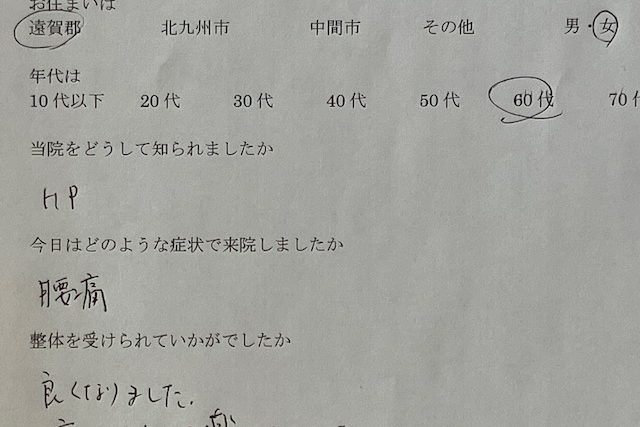 お住まいは
遠賀郡 北九州市 中間市 その他 男・女
年代は
10代以下 20代 30代 40代 50代 60代 70代
当院をどうして知られましたか
HP
今日はどのような症状で来院しましたか
腰痛
整体を受けられていかがでしたか
良くなりました。